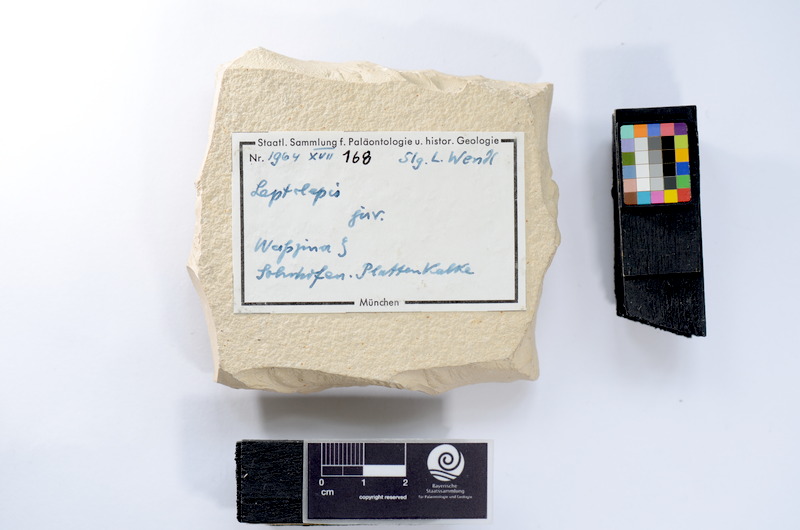 Staatl. Sammlung f. Paläontologie u. histor. Geologie
Nr. 1964 XVII 168 Slg. L. Wenk
Leptolepis
juv.
Solnhofen. Plattenkalke
München
0 1 2
cm
copyright reserved
Bayerische
Staatssammlung
für Paläontologie und Geologie